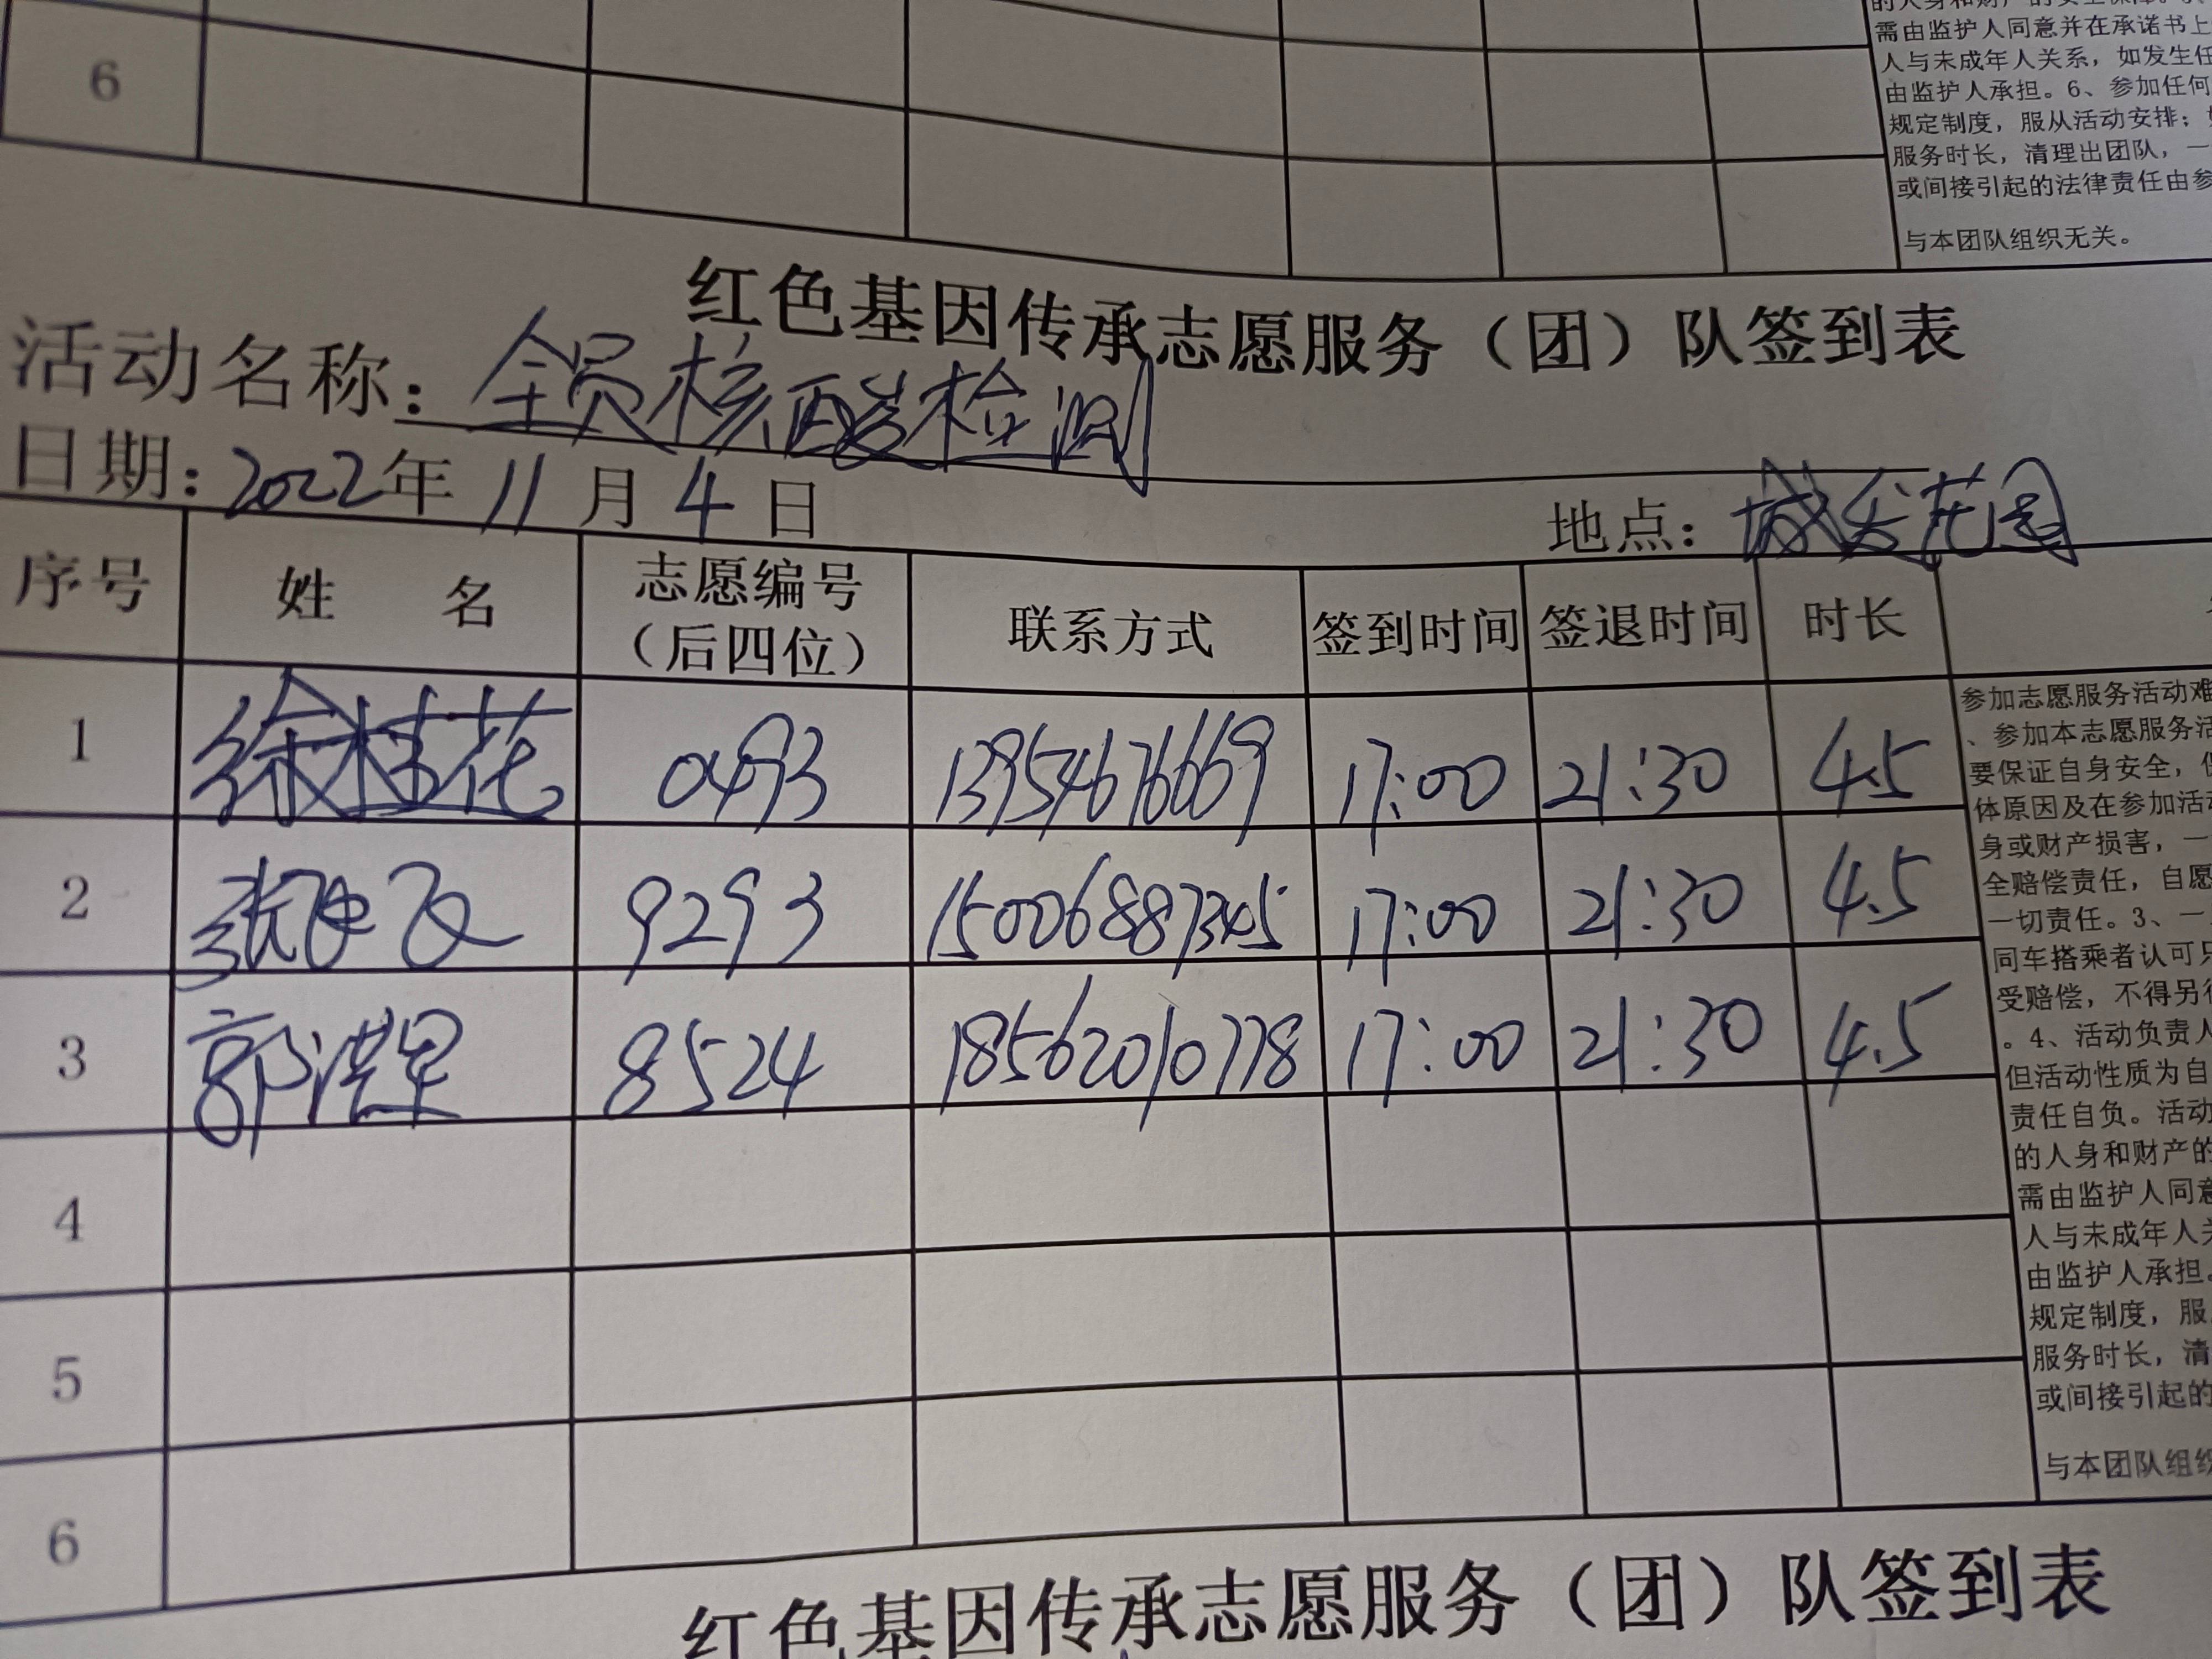 的人身和财产的安全保障。
需由监护人同意并在承诺书上
人与未成年人关系，如发生任
由监护人承担。6、参加任何
规定制度，服从活动安排；如
服务时长，清理出团队，一
或间接引起的法律责任由参
与本团队组织无关。
6
红色基因传承志愿服务（团）队签到表
活动名称：全员核酸检测
日期：2022年11月4日 地点：城乐花园
序号 姓 名 志愿编号（后四位） 联系方式 签到时间 签退时间 时长
1 徐桂花 0493 13954676669 17:00 21:30 4.5
2 张 飞 9293 15006887345 17:00 21:30 4.5
3 郭洪星 8524 18562010778 17:00 21:30 4.5
4
5
6
参加志愿服务活动难
、参加本志愿服务活
要保证自身安全，
体原因及在参加活动
身或财产损害，一
全赔偿责任，自愿
一切责任。3、一
同车搭乘者认可只
受赔偿，不得另行
。4、活动负责人
但活动性质为自
责任自负。活动
的人身和财产的
需由监护人同意
人与未成年人关
由监护人承担。
规定制度，服
服务时长，清
或间接引起的
与本团队组织
红色基因传承志愿服务（团）队签到表